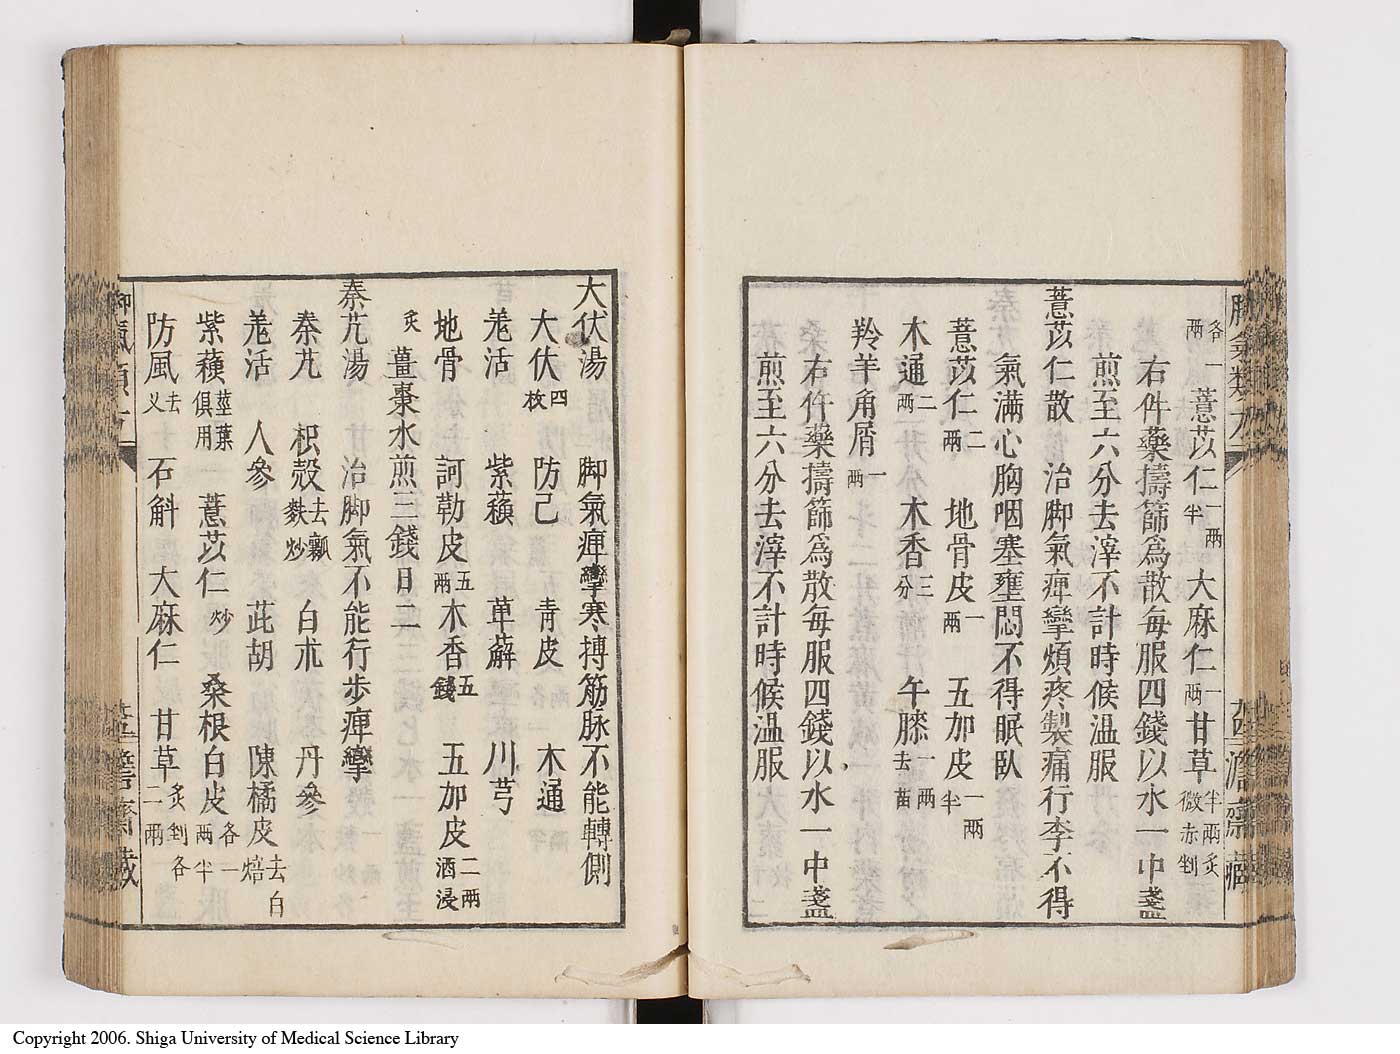 各一兩 薏苡仁一兩半 大麻仁一兩 甘草半兩炙微赤剉
右件藥擣篩爲散每服四錢以水一中盞
煎至六分去滓不計時候温服
薏苡仁散 治脚氣痺攣煩疼製痛行李不得
氣滿心胸咽塞壅悶不得眠臥
薏苡仁二兩 地骨皮一兩 五加皮一兩半
木通二兩 木香三分 午膝一兩去苗
羚羊角屑一兩
右件藥擣篩爲散每服四錢以水一中盞
煎至六分去滓不計時候温服
大伏湯 脚氣痺攣寒搏筋脉不能轉側
大伏四枚 防己 青皮 木通
羗活 紫蘓 萆薢 川芎
地骨 訶勒皮五兩 木香五錢 五加皮二兩酒浸
炙 薑棗水煎三錢日二
秦艽湯 治脚氣不能行步痺攣
秦艽 枳殼去瓤麩炒 白朮 丹參
羗活 人參 茈胡 陳橘皮去白焙
紫蘓莖葉俱用 薏苡仁炒 桑根白皮各一兩半
防風去义 石斛 大麻仁 甘草炙剉各二兩
脚氣類方
Copyright 2006. Shiga University of Medical Science Library